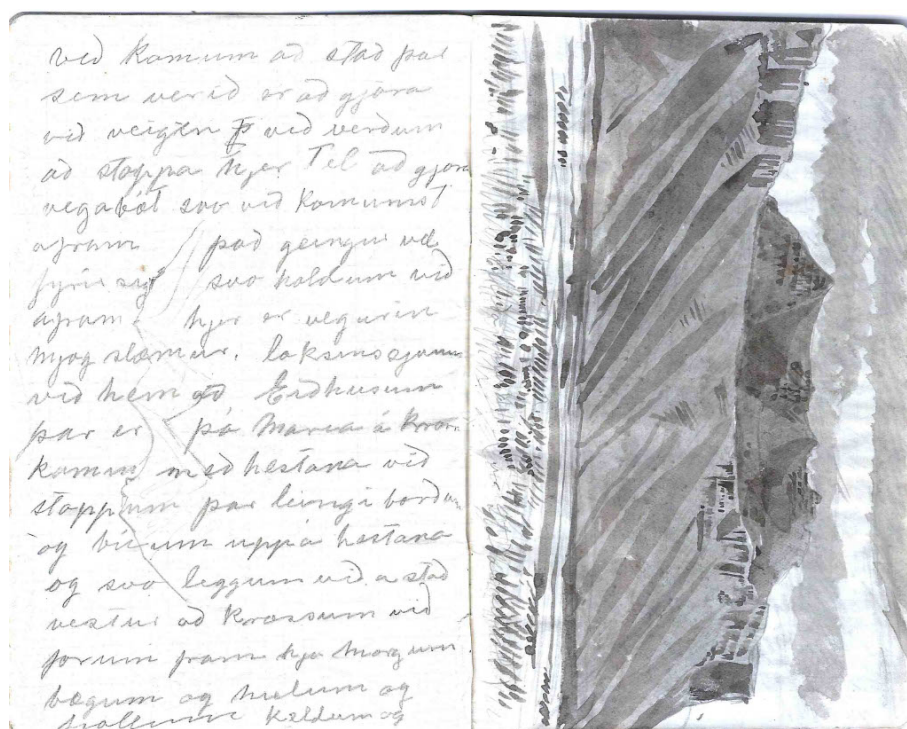 við komum að stað þar
sem verið er að gjöra
við veigin við verðum
að stoppa hjer Tel að gjöra
vegabót svo við komumst
afram það geingur vel
fyrir sig svo holdum við
afram hjer er vegurin
mjog slæmur. loksins sjaum
við hem að Eidhusum
þar er þá Maria á Kross
komin með hestana við
stoppum þar leingi bordum
og buum uppá hestana
og svo leggum við a stað
vestur að Krossum við
forum fram hja morgum
bægum og melum og
fjollum Kældum og